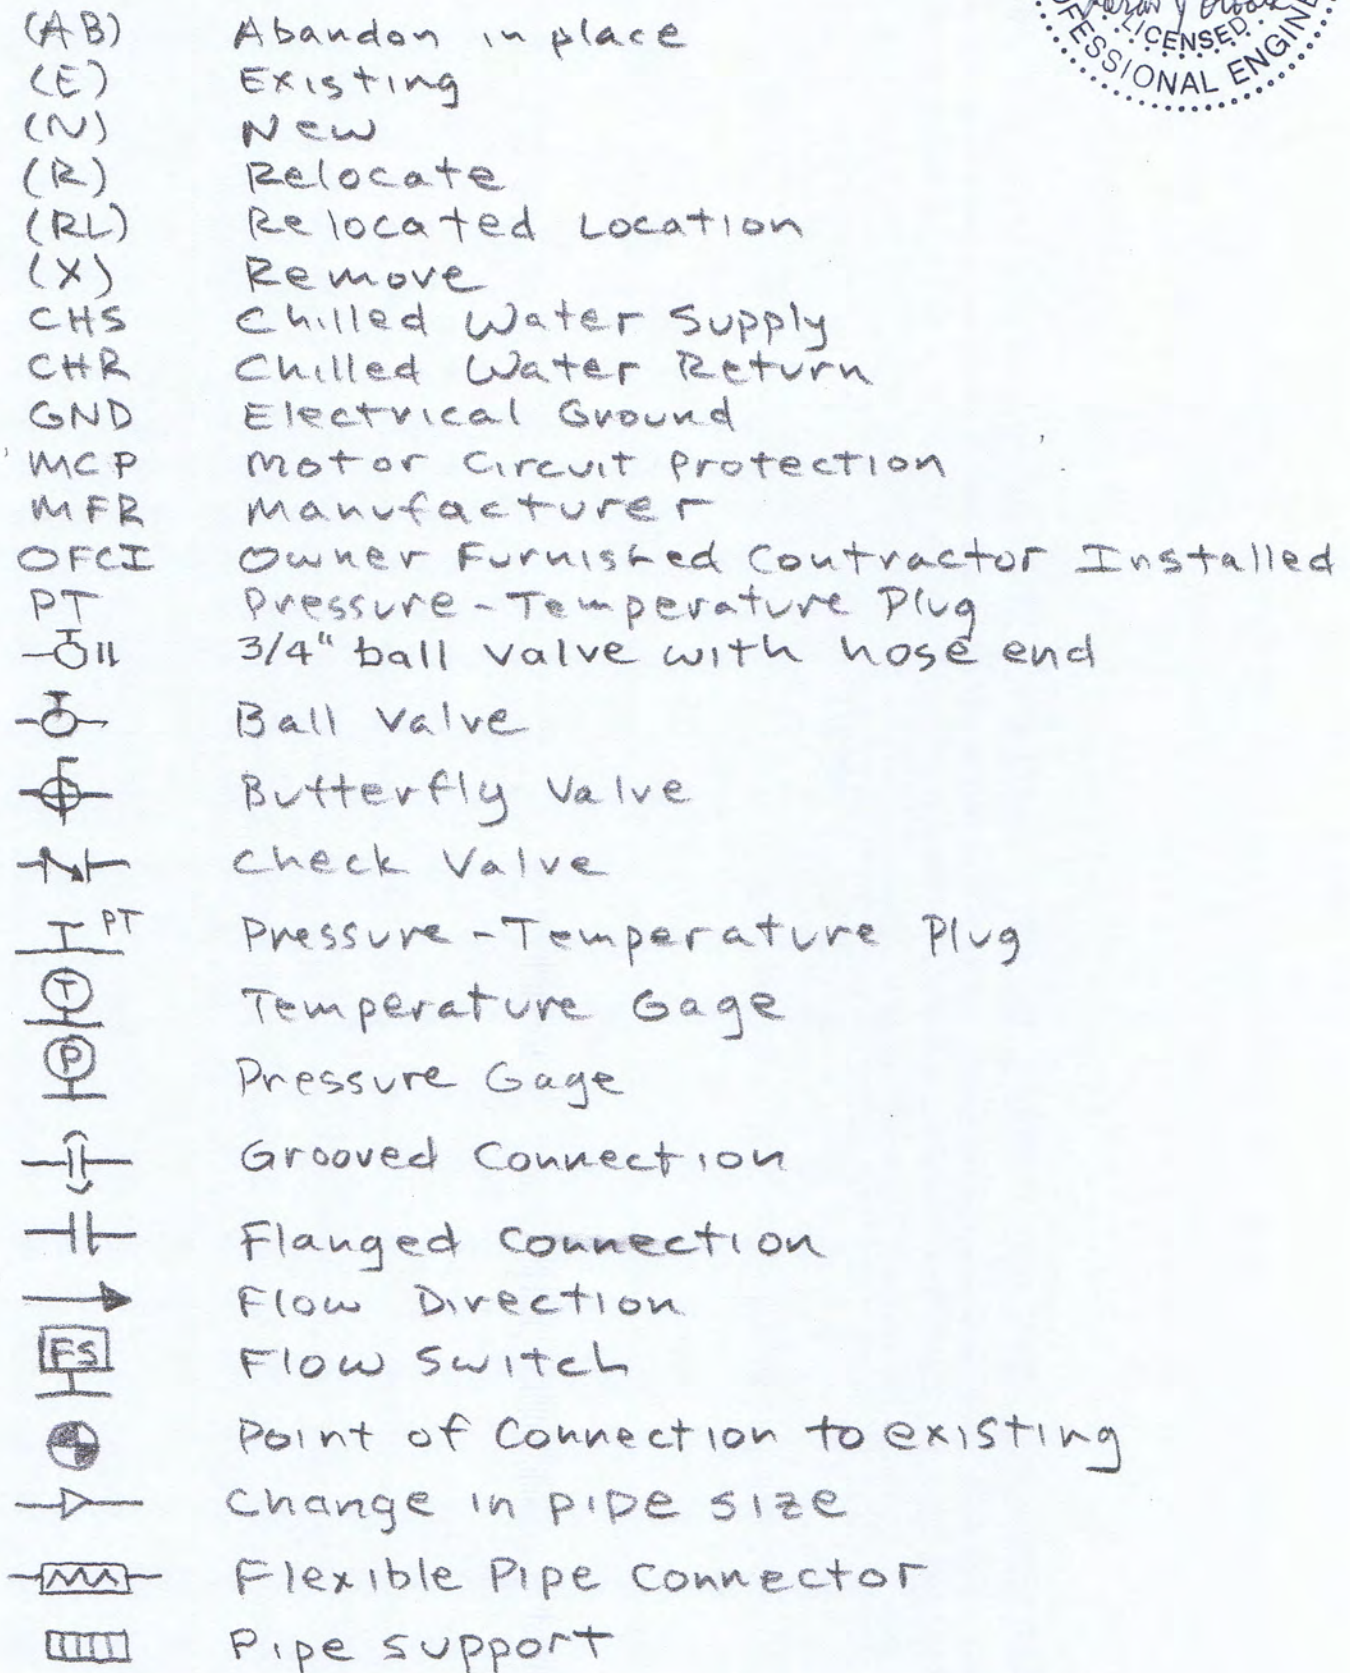 LICENSED
PROFESSIONAL ENGINE
(AB) Abandon in place
(E) Existing
(N) New
(R) Relocate
(RL) Relocated Location
(X) Remove
CHS Chilled Water Supply
CHR Chilled Water Return
GND Electrical Ground
MCP Motor Circuit Protection
MFR Manufacturer
OFCI Owner Furnished Contractor Installed
PT Pressure-Temperature Plug
3/4" ball valve with hose end
Ball Valve
Butterfly Valve
Check Valve
PT Pressure-Temperature Plug
T Temperature Gage
P Pressure Gage
Grooved Connection
Flanged Connection
Flow Direction
FS Flow Switch
Point of Connection to existing
Change in pipe size
Flexible Pipe Connector
Pipe support